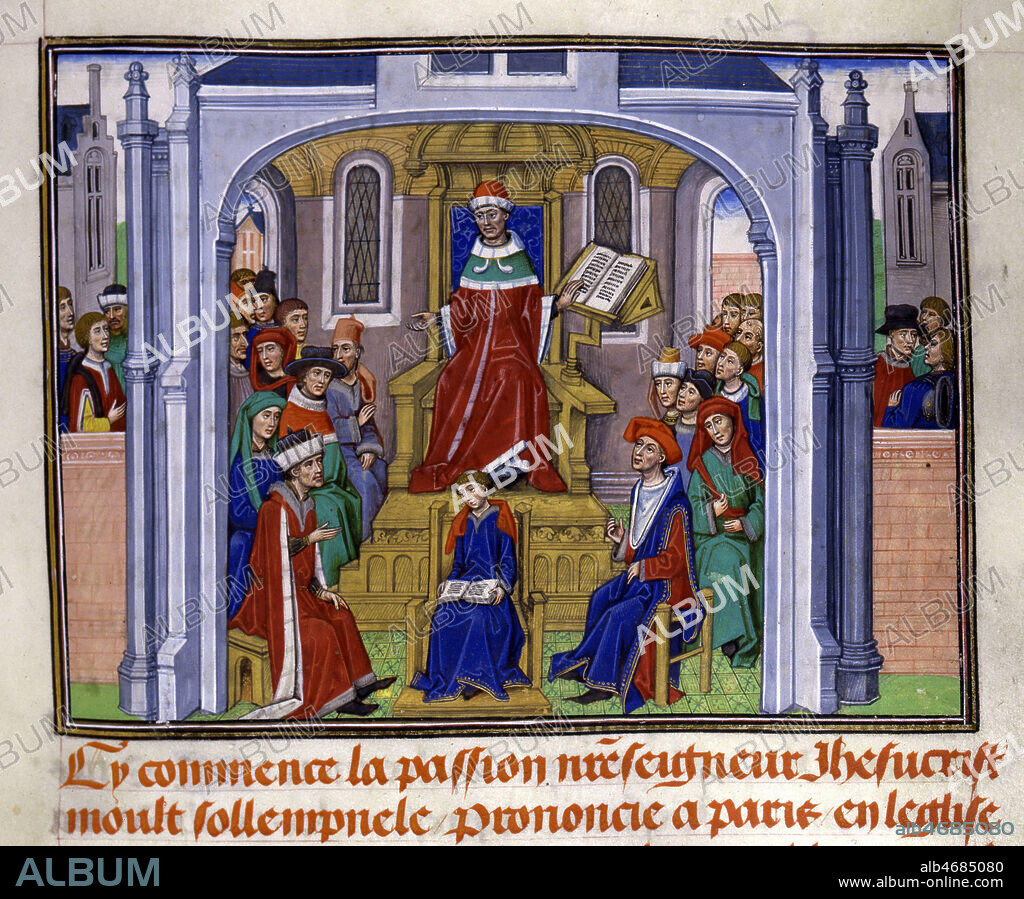 Cy commence la passion nr̃e seigneur Jhesucrist
moult sollempnele prononcie a paris en leglise
alb4685080
ALBUM
alb4685080
www.album-online.com